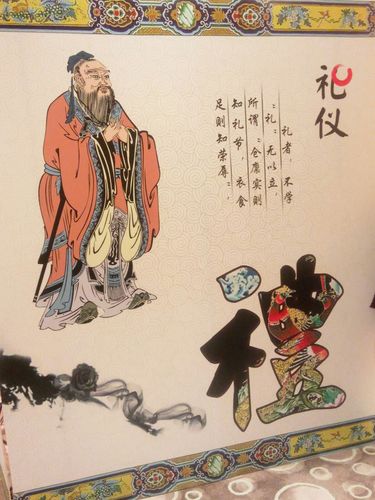 礼仪
礼者，不学
“礼”无以立，
所谓“仓廪实则
知礼节，衣食
足则知荣辱”，
禮